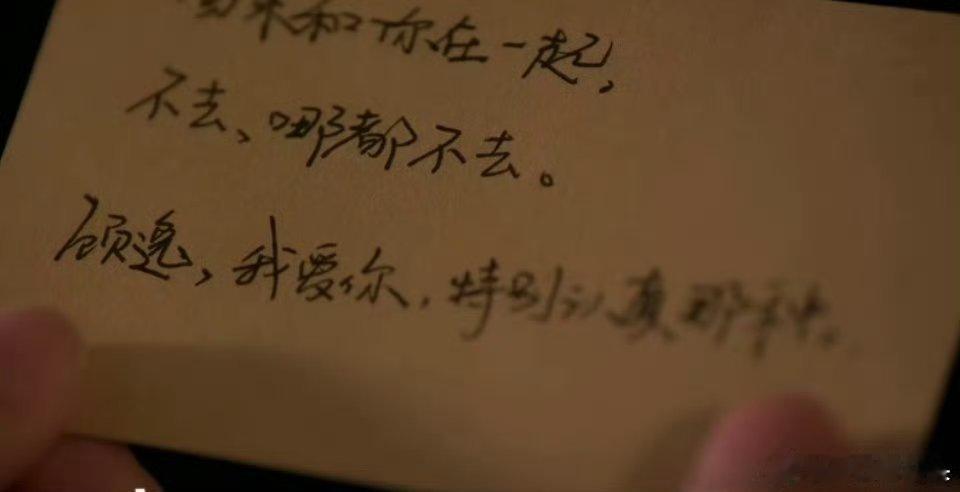 来和你在一起,
不去、哪都不去。
顾遥,我爱你,特别认真那种。